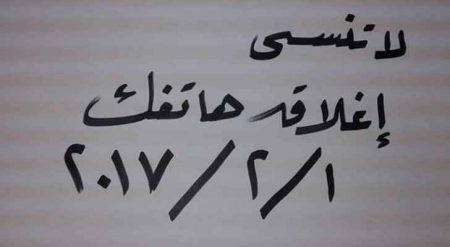 لا تنسى
إغلاق هاتفك
٢٠١٧/٢/١